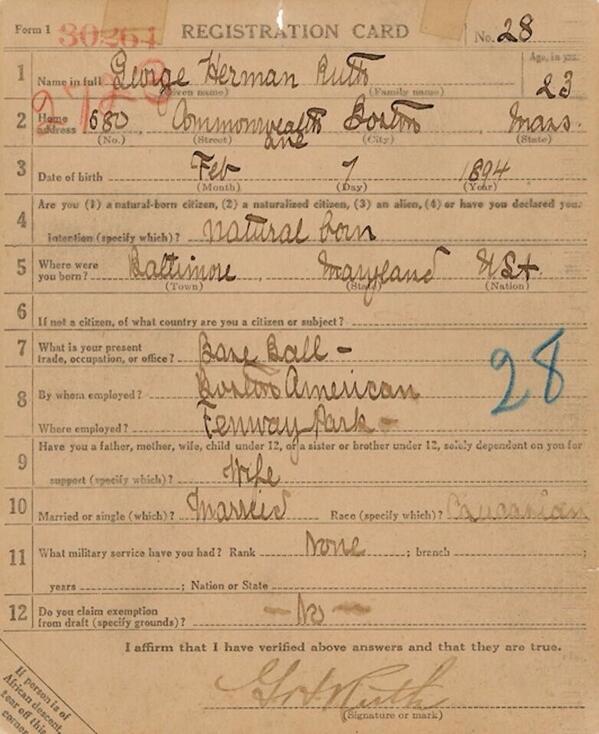 Form 1 30264 REGISTRATION CARD No. 28
1 Name in full George Herman Ruth Age, in yrs. 23
(Given name) (Family name)
2 Home address 680 Commonwealth ave Boston Mass.
(No.) (Street) (City) (State)
3 Date of birth Feb 7 1894
(Month) (Day) (Year)
4 Are you (1) a natural-born citizen, (2) a naturalized citizen, (3) an alien, (4) or have you declared your
intention (specify which)? natural born
5 Where were you born? Baltimore Maryland USA
(Town) (State) (Nation)
6 If not a citizen, of what country are you a citizen or subject?
7 What is your present trade, occupation, or office? Base Ball -
28
8 By whom employed? Boston American
Where employed? Fenway Park -
9 Have you a father, mother, wife, child under 12, or a sister or brother under 12, solely dependent on you for
support (specify which)? Wife
10 Married or single (which)? Married Race (specify which)? Caucasian
11 What military service have you had? Rank None ; branch ;
years ; Nation or State
12 Do you claim exemption from draft (specify grounds)? - No -
I affirm that I have verified above answers and that they are true.
G H Ruth
(Signature or mark)
If person is of
African descent,
tear off this
corner